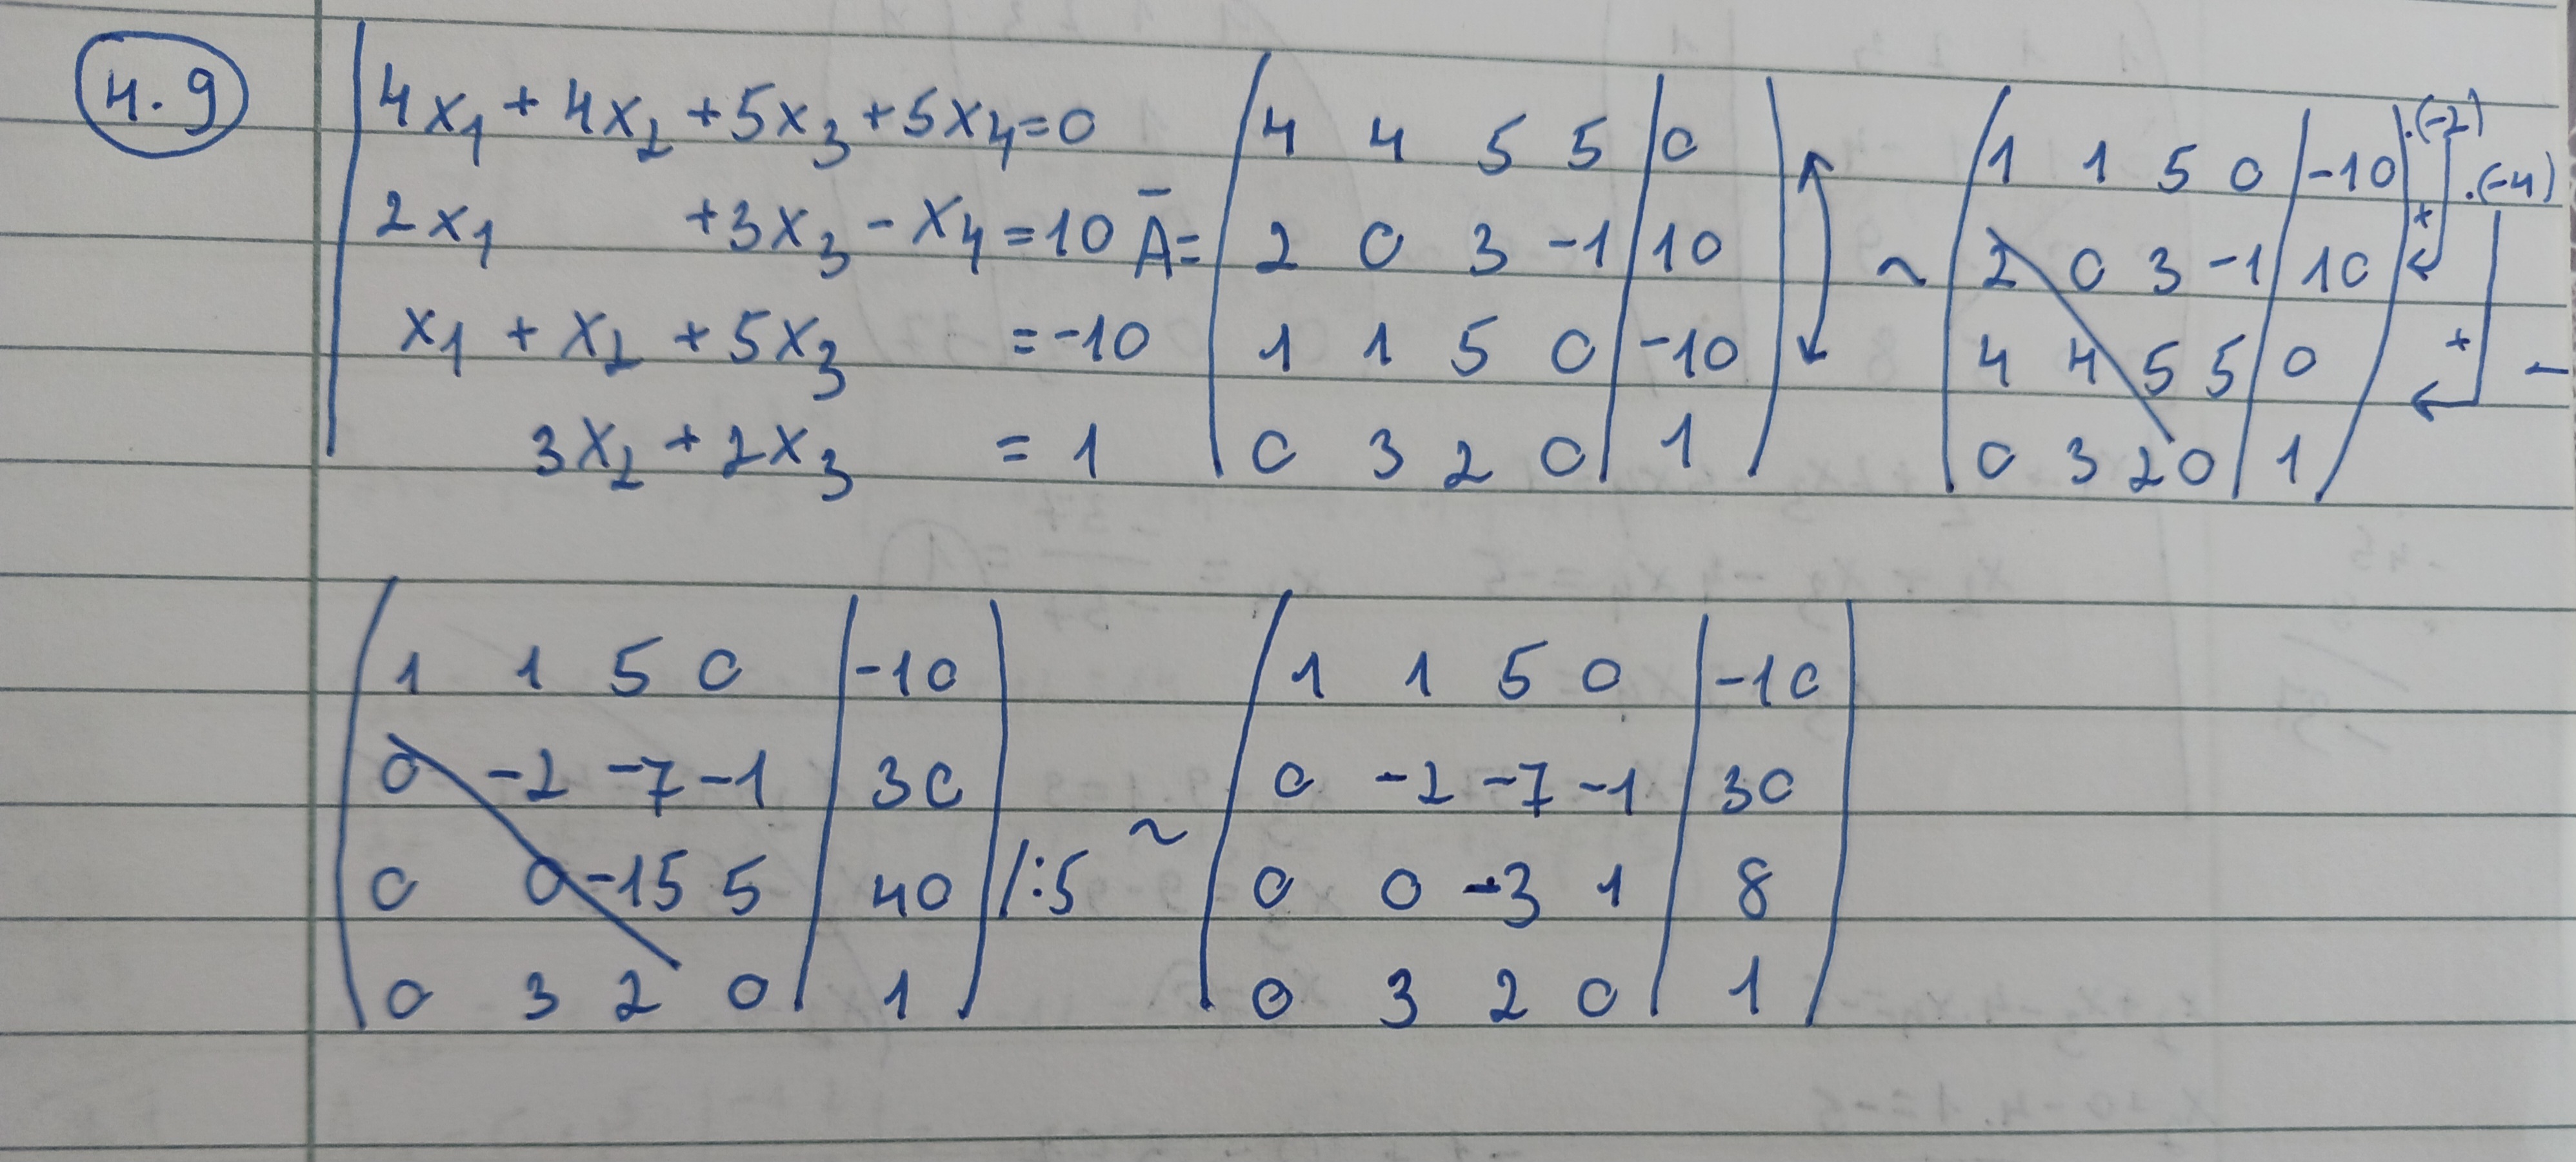 4.9
4x₁ + 4x₂ + 5x₃ + 5x₄ = 0
2x₁ + 3x₃ - x₄ = 10
x₁ + x₂ + 5x₃ = -10
3x₂ + 2x₃ = 1
Ā =
4 4 5 5 | 0
2 0 3 -1 | 10
1 1 5 0 | -10
0 3 2 0 | 1
~
1 1 5 0 | -10 .(-2) .(-4)
2 0 3 -1 | 10 +
4 4 5 5 | 0 + ~
0 3 2 0 | 1
1 1 5 0 | -10
0 -2 -7 -1 | 30
0 0 -15 5 | 40 /:5
0 3 2 0 | 1
~
1 1 5 0 | -10
0 -2 -7 -1 | 30
0 0 -3 1 | 8
0 3 2 0 | 1